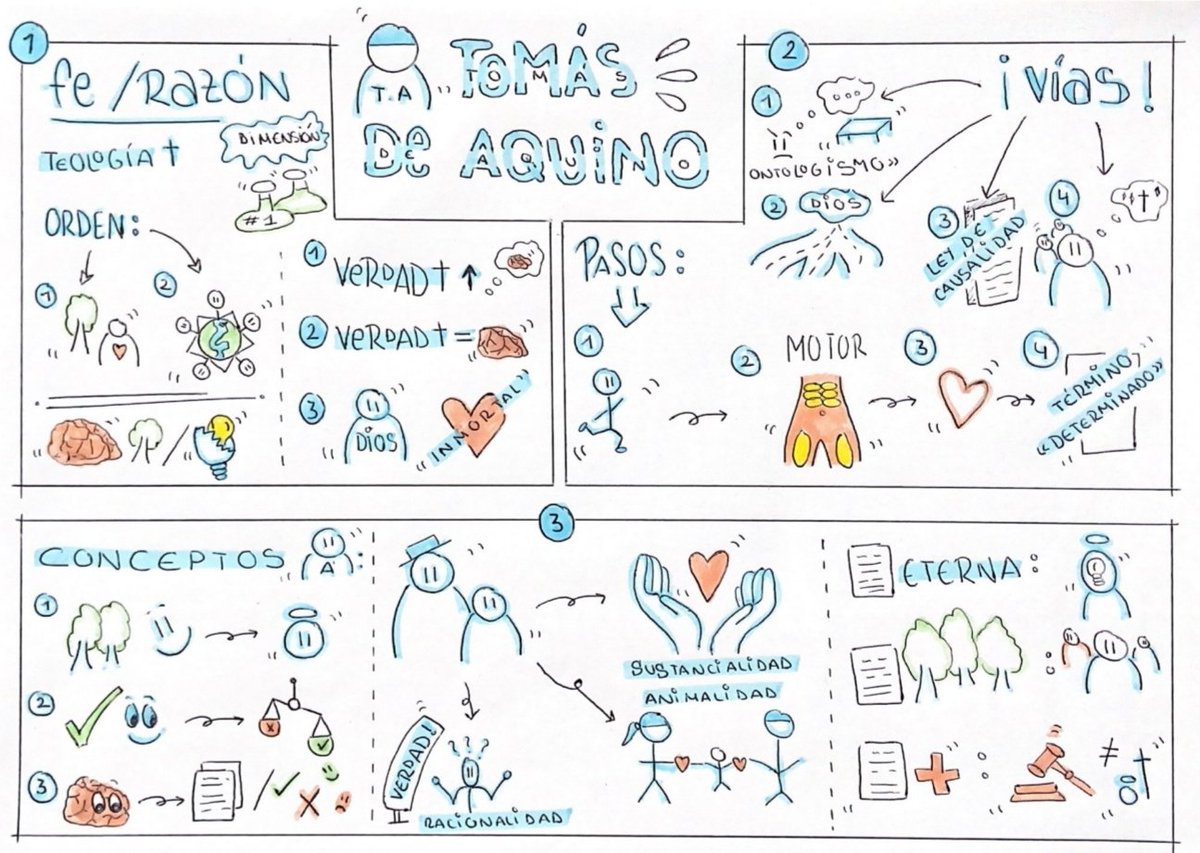 1
fe / RAZÓN
TEOLOGÍA †
DIMENSIÓN
#1
ORDEN:
1
2
T.A
TOMÁS
TOMAS
DE AQUINO
DE AQUINO
1 VERDAD † ↑
2 VERDAD † =
3
DIOS
"INMORTAL"
2
¡VÍAS!
1
...
ONTOLOGISMO»
2 DIOS
3 LEY DE CAUSALIDAD
4
†
PASOS:
1
2 MOTOR
3
4 TÉRMINO,
«DETERMINADO»
3
CONCEPTOS A:
1
2
3
VERDAD!
???
RACIONALIDAD
SUSTANCIALIDAD
ANIMALIDAD
ETERNA:
:
+ : ≠ †